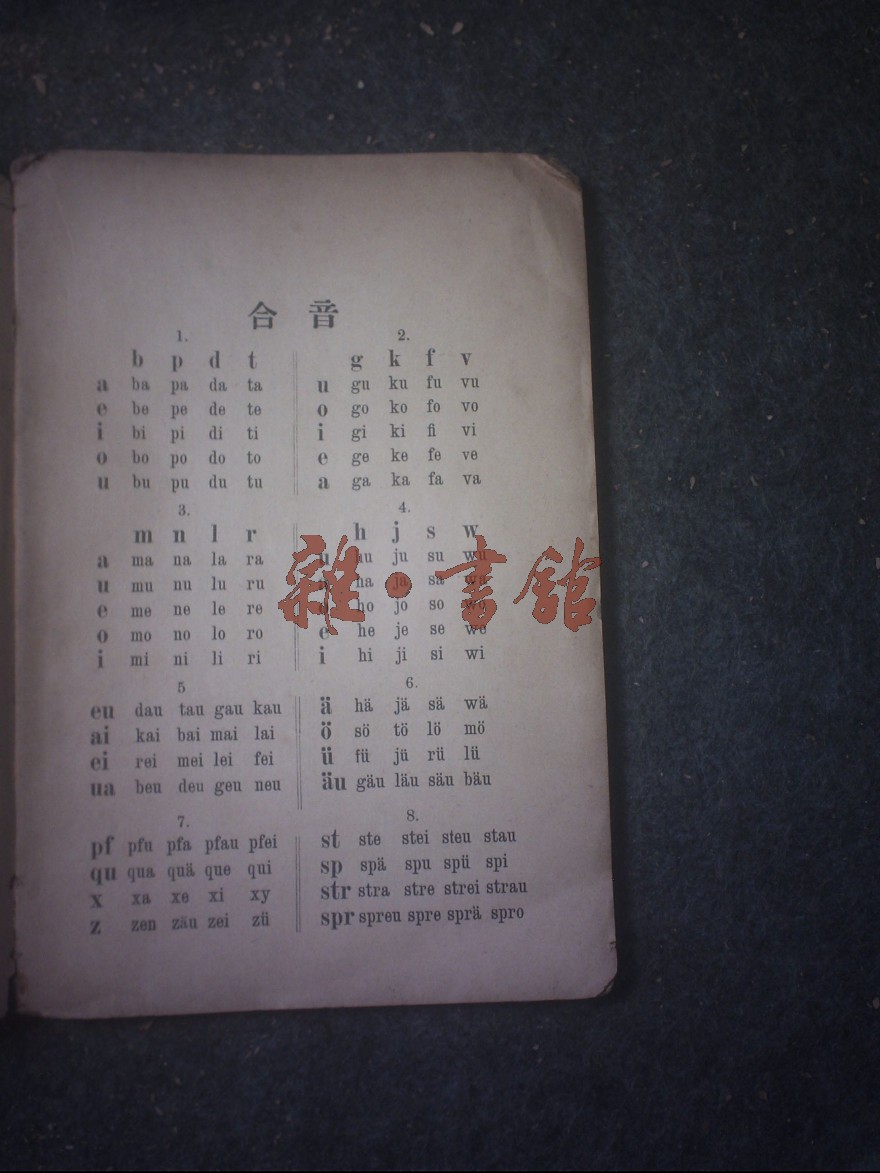 合音
1.
b p d t
a ba pa da ta
e be pe de te
i bi pi di ti
o bo po do to
u bu pu du tu
2.
g k f v
u gu ku fu vu
o go ko fo vo
i gi ki fi vi
e ge ke fe ve
a ga ka fa va
3.
m n l r
a ma na la ra
u mu nu lu ru
e me ne le re
o mo no lo ro
i mi ni li ri
4.
h j s w
u hu ju su wu
a ha ja sa wa
o ho jo so wo
e he je se we
i hi ji si wi
5
eu dau tau gau kau
ai kai bai mai lai
ei rei mei lei fei
ua beu deu geu neu
6.
ä hä jä sä wä
ö sö tö lö mö
ü fü jü rü lü
äu gäu läu säu bäu
7.
pf pfu pfa pfau pfei
qu qua quä que qui
x xa xe xi xy
z zen zäu zei zü
8.
st ste stei steu stau
sp spä spu spü spi
str stra stre strei strau
spr spreu spre sprä spro
雜·書館